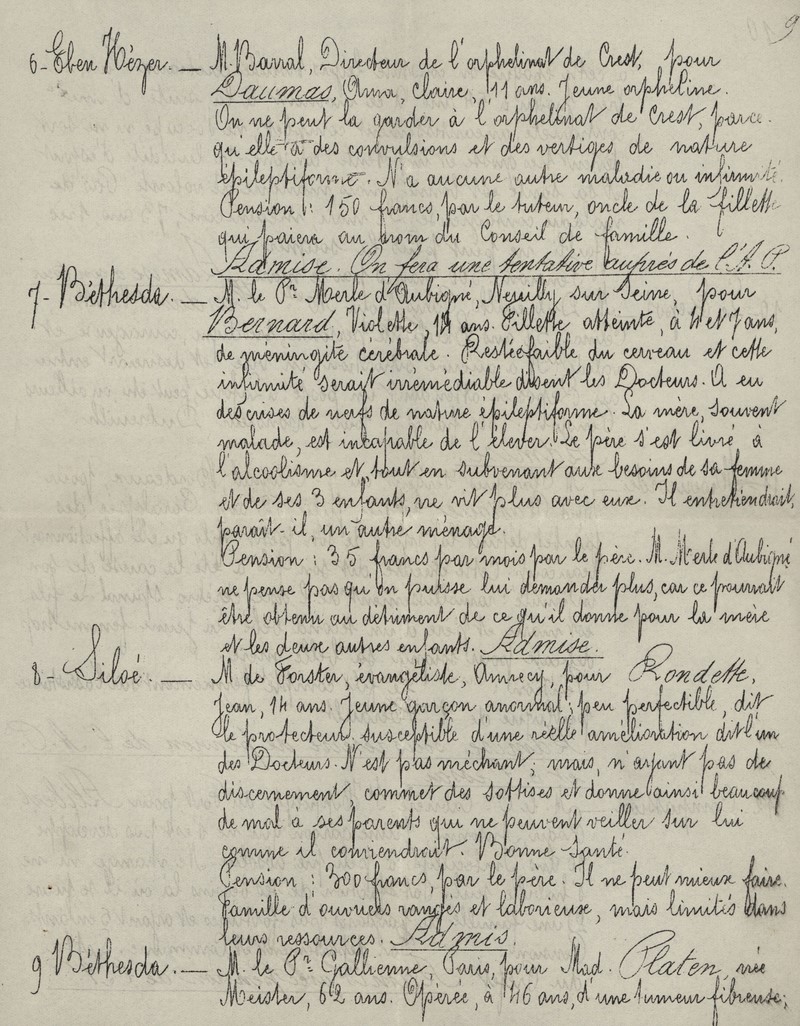 9
6 - Eben Hézer. — M. Barral, Directeur de l'orphelinat de Crest, pour
Daumas, Anna, Claire, 11 ans. Jeune orpheline.
On ne peut la garder à l'orphelinat de Crest, parce
qu'elle a des convulsions et des vertiges de nature
épileptiforme. N'a aucune autre maladie ou infirmité.
Pension : 150 francs, par le tuteur, oncle de la fillette
qui paiera au nom du Conseil de famille.
Admise. On fera une tentative auprès de l'A. P.
7 - Béthesda. — M. le Pr Merle d'Aubigné, Neuilly sur Seine, pour
Bernard, Violette, 14 ans. Fillette atteinte, à 4 et 7 ans,
de méningite cérébrale. Restée faible du cerveau et cette
infirmité serait irrémédiable disent les Docteurs. A eu
des crises de nerfs de nature épileptiforme. La mère, souvent
malade, est incapable de l'élever. Le père s'est livré à
l'alcoolisme et, tout en subvenant aux besoins de sa femme
et de ses 3 enfants, ne vit plus avec eux. Il entretiendrait,
paraît-il, un autre ménage.
Pension : 35 francs par mois par le père. M. Merle d'Aubigné
ne pense pas qu'on puisse lui demander plus, car ce pourrait
être obtenu au détriment de ce qu'il donne pour la mère
et les deux autres enfants. Admise.
8 - Siloé. — M de Forster, évangéliste, Annecy, pour Rondette,
Jean, 14 ans. Jeune garçon anormal ; peu perfectible, dit
le protecteur, susceptible d'une réelle amélioration dit l'un
des Docteurs. N'est pas méchant ; mais, n'ayant pas de
discernement, commet des sottises et donne ainsi beaucoup
de mal à ses parents qui ne peuvent veiller sur lui
comme il conviendrait. Bonne santé.
Pension : 300 francs, par le père. Il ne peut mieux faire.
Famille d'ouvriers rangés et laborieux, mais limités dans
leurs ressources. Admis.
9 Béthesda. — M. le Pr Gallienne, Paris, pour Mad. Platen, née
Meister, 62 ans. Opérée, à 46 ans, d'une tumeur fibreuse ;